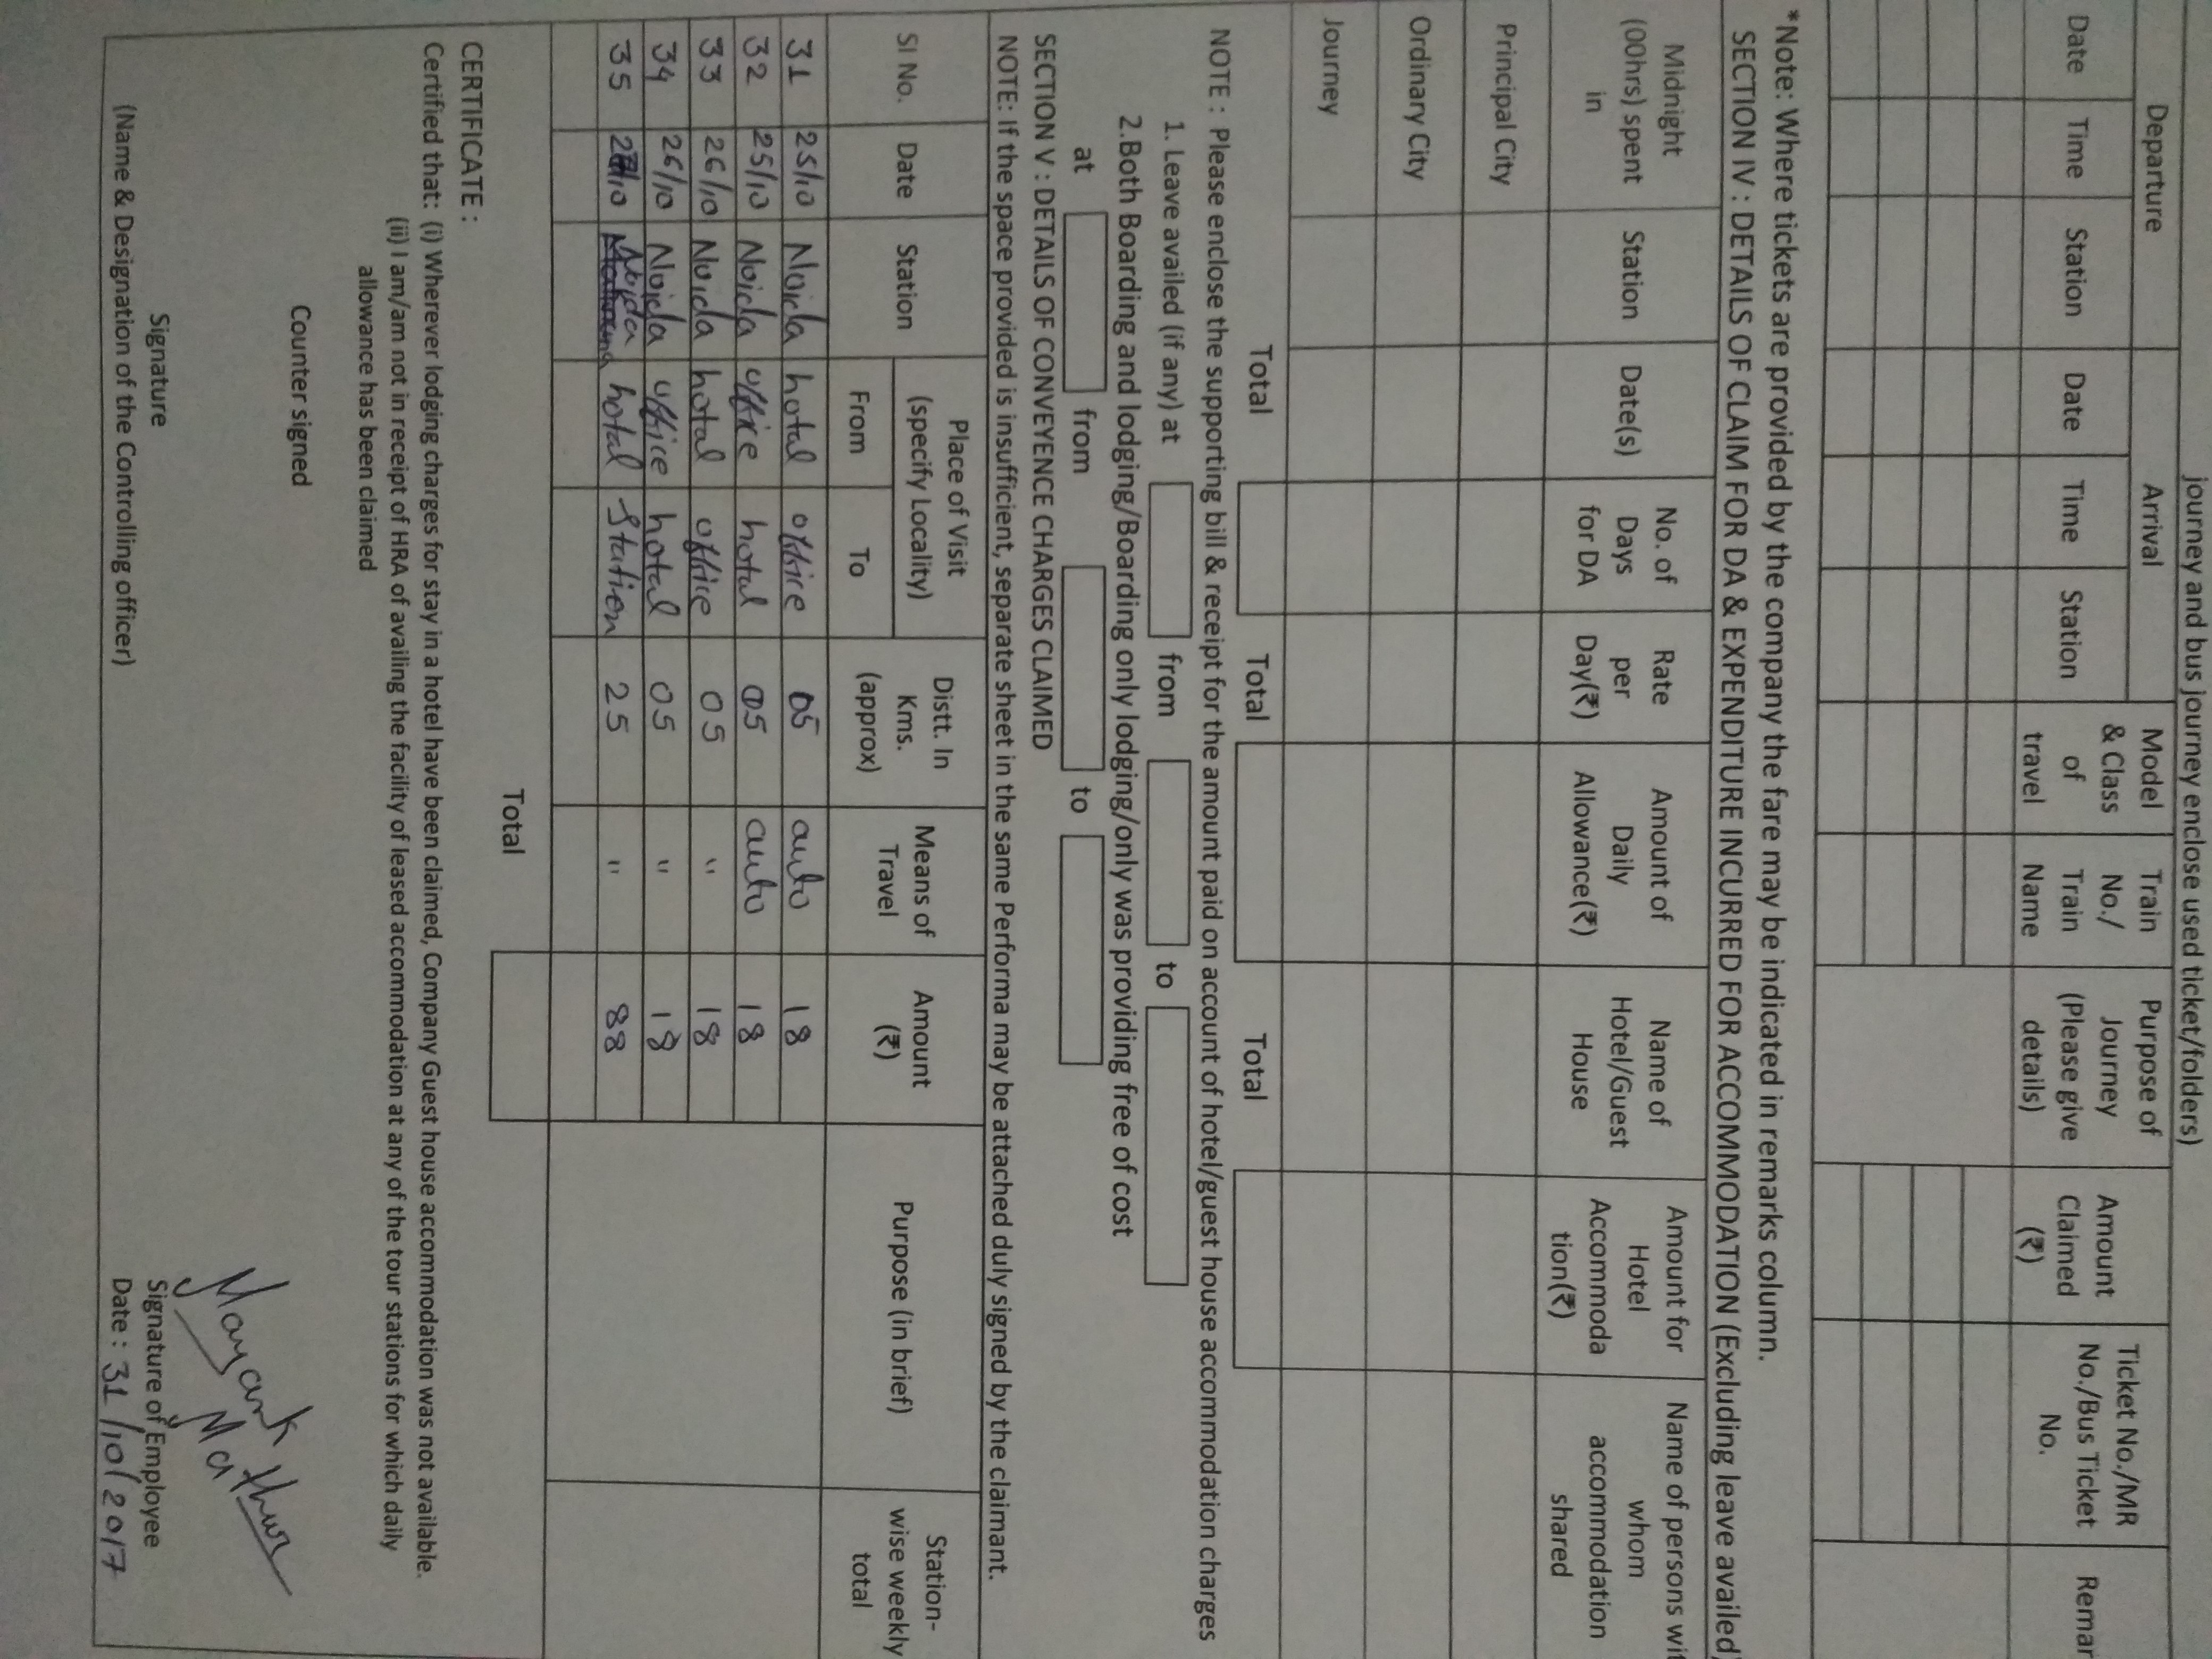 journey and bus journey enclose used ticket/folders)
Departure Arrival Model & Class of travel Train No./ Train Name Purpose of Journey (Please give details) Amount Claimed (₹) Ticket No./MR No./Bus Ticket No. Remar
Date Time Station Date Time Station
*Note: Where tickets are provided by the company the fare may be indicated in remarks column.
SECTION IV : DETAILS OF CLAIM FOR DA & EXPENDITURE INCURRED FOR ACCOMMODATION (Excluding leave availed)
Midnight (00hrs) spent in Station Date(s) No. of Days for DA Rate per Day(₹) Amount of Daily Allowance(₹) Name of Hotel/Guest House Amount for Hotel Accommoda tion(₹) Name of persons wit whom accommodation shared
Principal City
Ordinary City
Journey
Total Total Total
NOTE : Please enclose the supporting bill & receipt for the amount paid on account of hotel/guest house accommodation charges
1. Leave availed (if any) at from to
2.Both Boarding and lodging/Boarding only lodging/only was providing free of cost
at from to
SECTION V : DETAILS OF CONVEYENCE CHARGES CLAIMED
NOTE: If the space provided is insufficient, separate sheet in the same Performa may be attached duly signed by the claimant.
Sl No. Date Station Place of Visit (specify Locality) Distt. In Kms. (approx) Means of Travel Amount (₹) Purpose (in brief) Station-wise weekly total
From To
31 25/10 Noida hotal office 05 auto 18
32 25/10 Noida office hotal 05 auto 18
33 26/10 Noida hotal office 05 " 18
34 26/10 Noida office hotal 05 " 18
35 27/10 Noida hotal Station 25 " 88
Total
CERTIFICATE :
Certified that: (i) Wherever lodging charges for stay in a hotel have been claimed, Company Guest house accommodation was not available.
(ii) I am/am not in receipt of HRA of availing the facility of leased accommodation at any of the tour stations for which daily
allowance has been claimed
Counter signed
Mayank Mathur
Signature Signature of Employee
(Name & Designation of the Controlling officer) Date : 31/10/2017